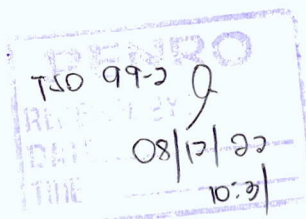 PENRO
TSD 99-2
RECEIVED BY
DATE 08/12/22
TIME 10:31